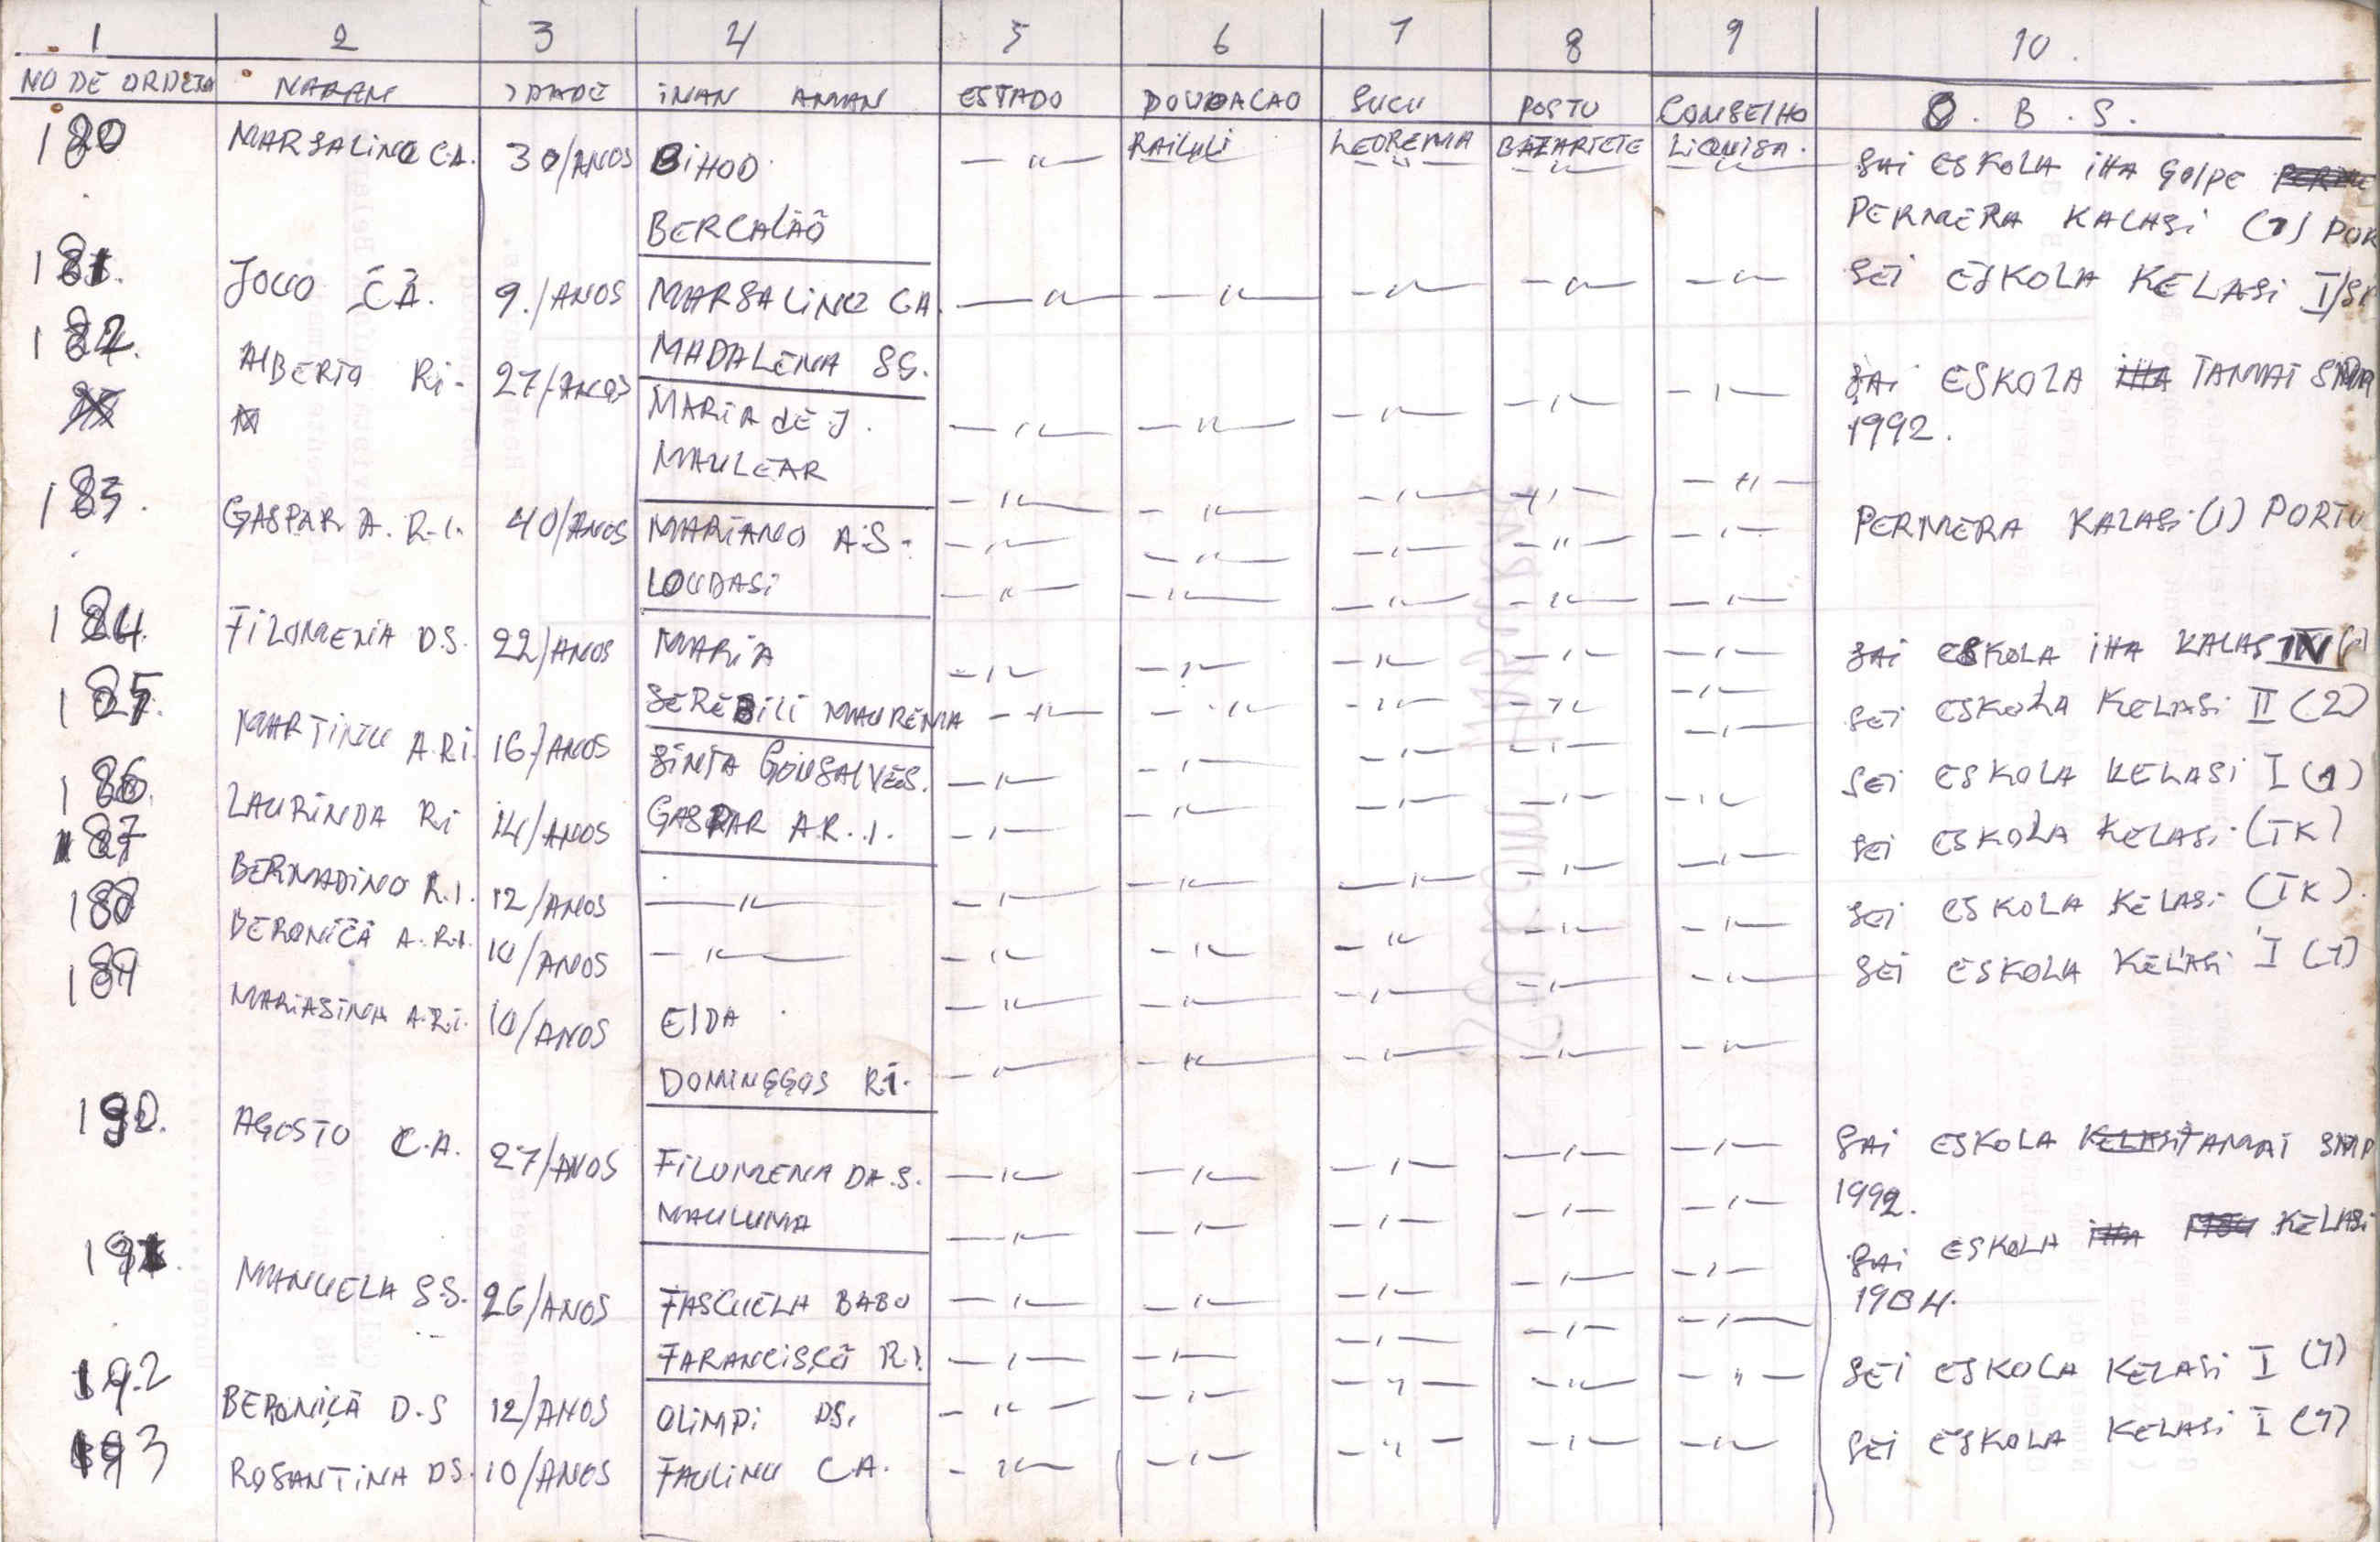 1 2 3 4 5 6 7 8 9 10.
NO DE ORDEM NARAN IDADE INAN AMAN ESTADO POUOACAO SUCU POSTU CONSELHO O.B.S.
180 MARSALINO C.A. 30/ANOS BIHOD. — " — RAILULI LEOREMA BAZARTETE LIQUISA. SAI ESKOLA IHA GOLPE
BERCALAÕ PERMERA KALASI (1)
181. JOUO C.A. 9./ANOS MARSALINO CA. — " — — " — — " — — " — — " — SEI ESKOLA KELASI I
MADALENA SS.
182. ALBERTO Ri- 27/ANOS MARIA dE J. — " — — " — — " — — " — — " — SAI ESKOLA TAMAT SMA
MAULEAR 1992.
183. GASPAR A. R.I. 40/ANOS MARIANO A.S. — " — — " — — " — — " — — " — PERMERA KALASI (1) PORTU
LOUDASI — " — — " — — " — — " — — " —
184. FILOMENA D.S. 22/ANOS MARIA — " — — " — — " — — " — — " — SAI ESKOLA IHA KALAS IV
SEREBILI MAUREMA — " — — " — — " — — " — — " —
185. MARTINU A.Ri. 16/ANOS SINTA GONSALVES. — " — — " — — " — — " — — " — SEI ESKOLA KELASI II (2)
186. LAURINDA Ri 14/ANOS GASPAR A.R.I. — " — — " — — " — — " — — " — SEI ESKOLA KELASI I (1)
187 BERNADINO R.I. 12/ANOS — " — — " — — " — — " — — " — — " — SEI ESKOLA KELASI (TK)
188 BERONICA A.R.I. 10/ANOS — " — — " — — " — — " — — " — — " — SEI ESKOLA KELASI (TK).
189 MARIASINA A.Ri. 10/ANOS ElDA — " — — " — — " — — " — — " — SEI ESKOLA KELASI I (1)
DOMINGGOS R.I. — " — — " — — " — — " — — " —
190. AGOSTO C.A. 27/ANOS FILOMENA DA.S. — " — — " — — " — — " — — " — SAI ESKOLA TAMAT SMP
MAULUMA — " — — " — — " — — " — — " — 1992.
191. MANUELA S.S. 26/ANOS FASCUELA BABO — " — — " — — " — — " — — " — SAI ESKOLA KELASI
FARANCISCO R.I. — " — — " — — " — — " — — " — 1984.
192 BERONIÇA D.S 12/ANOS OLIMPI DS. — " — — " — — " — — " — — " — SEI ESKOLA KELASI I (1)
193 ROSANTINA DS. 10/ANOS FAULINU C.A. — " — — " — — " — — " — — " — SEI ESKOLA KELASI I (1)